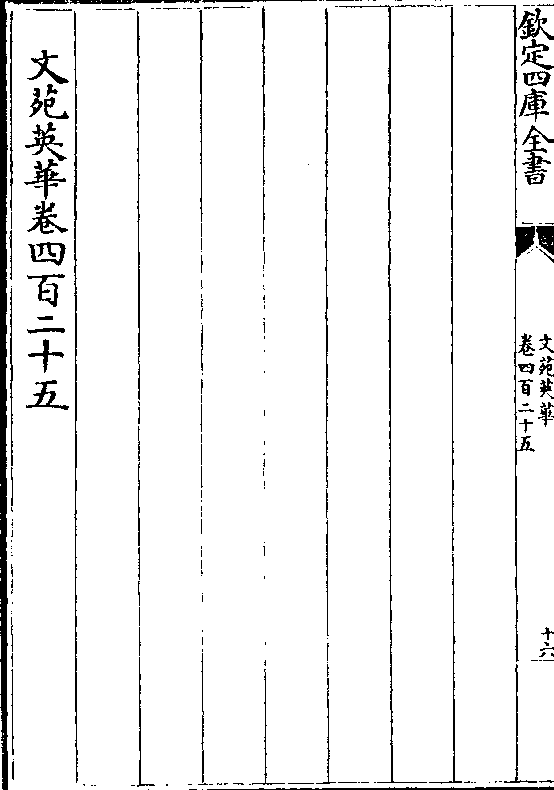 欽定四庫全書
文苑英華
卷四百二十五
十六
文苑英華卷四百二十五